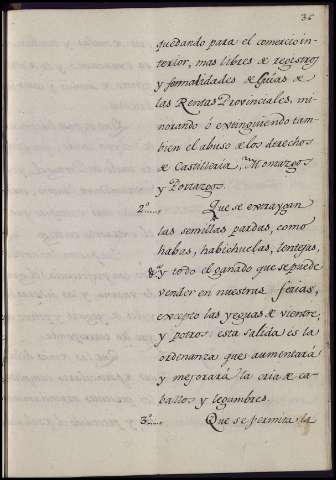 36
quedando para el comercio in-
terior, mas libres de registros
y formalidades de Guias de
las Rentas Provinciales, mi-
norando ó extinguiendo tam-
bien el abuso de los derechos
de Castilleria, Montazgos
y Portazgos.
2º Que se extraygan
las semillas pardas, como
habas, habichuelas, lentejas,
&ª y todo el ganado que se puede
vender en nuestras ferias,
excepto las yeguas de vientre,
y potros: esta salida es la
ordenanza que aumentará
y mejorará la cria de ca-
ballos y legumbres.
3º Que se permita la